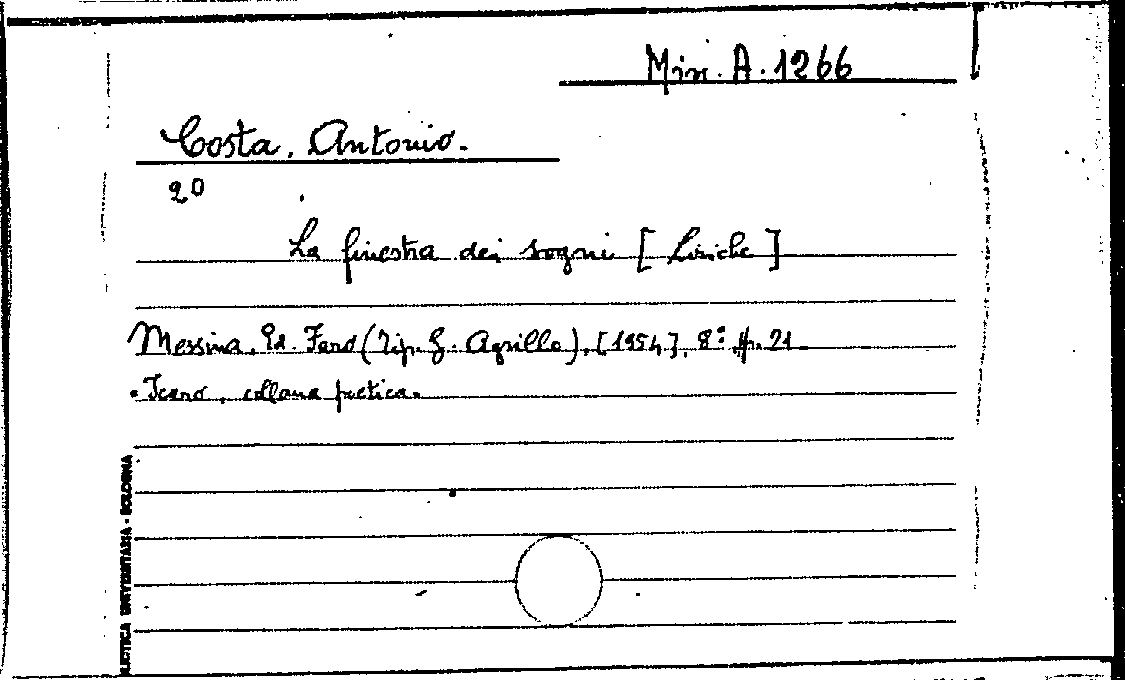 Min. A. 1266
Costa, Antonio.
20
La finestra dei sogni [Liriche]
Messina, Ed. Faro (Tip. G. Agrillo), [1954], 8° pp. 21.
"Icaro, collana poetica"
UNIVERSITARIA - BOLOGNA